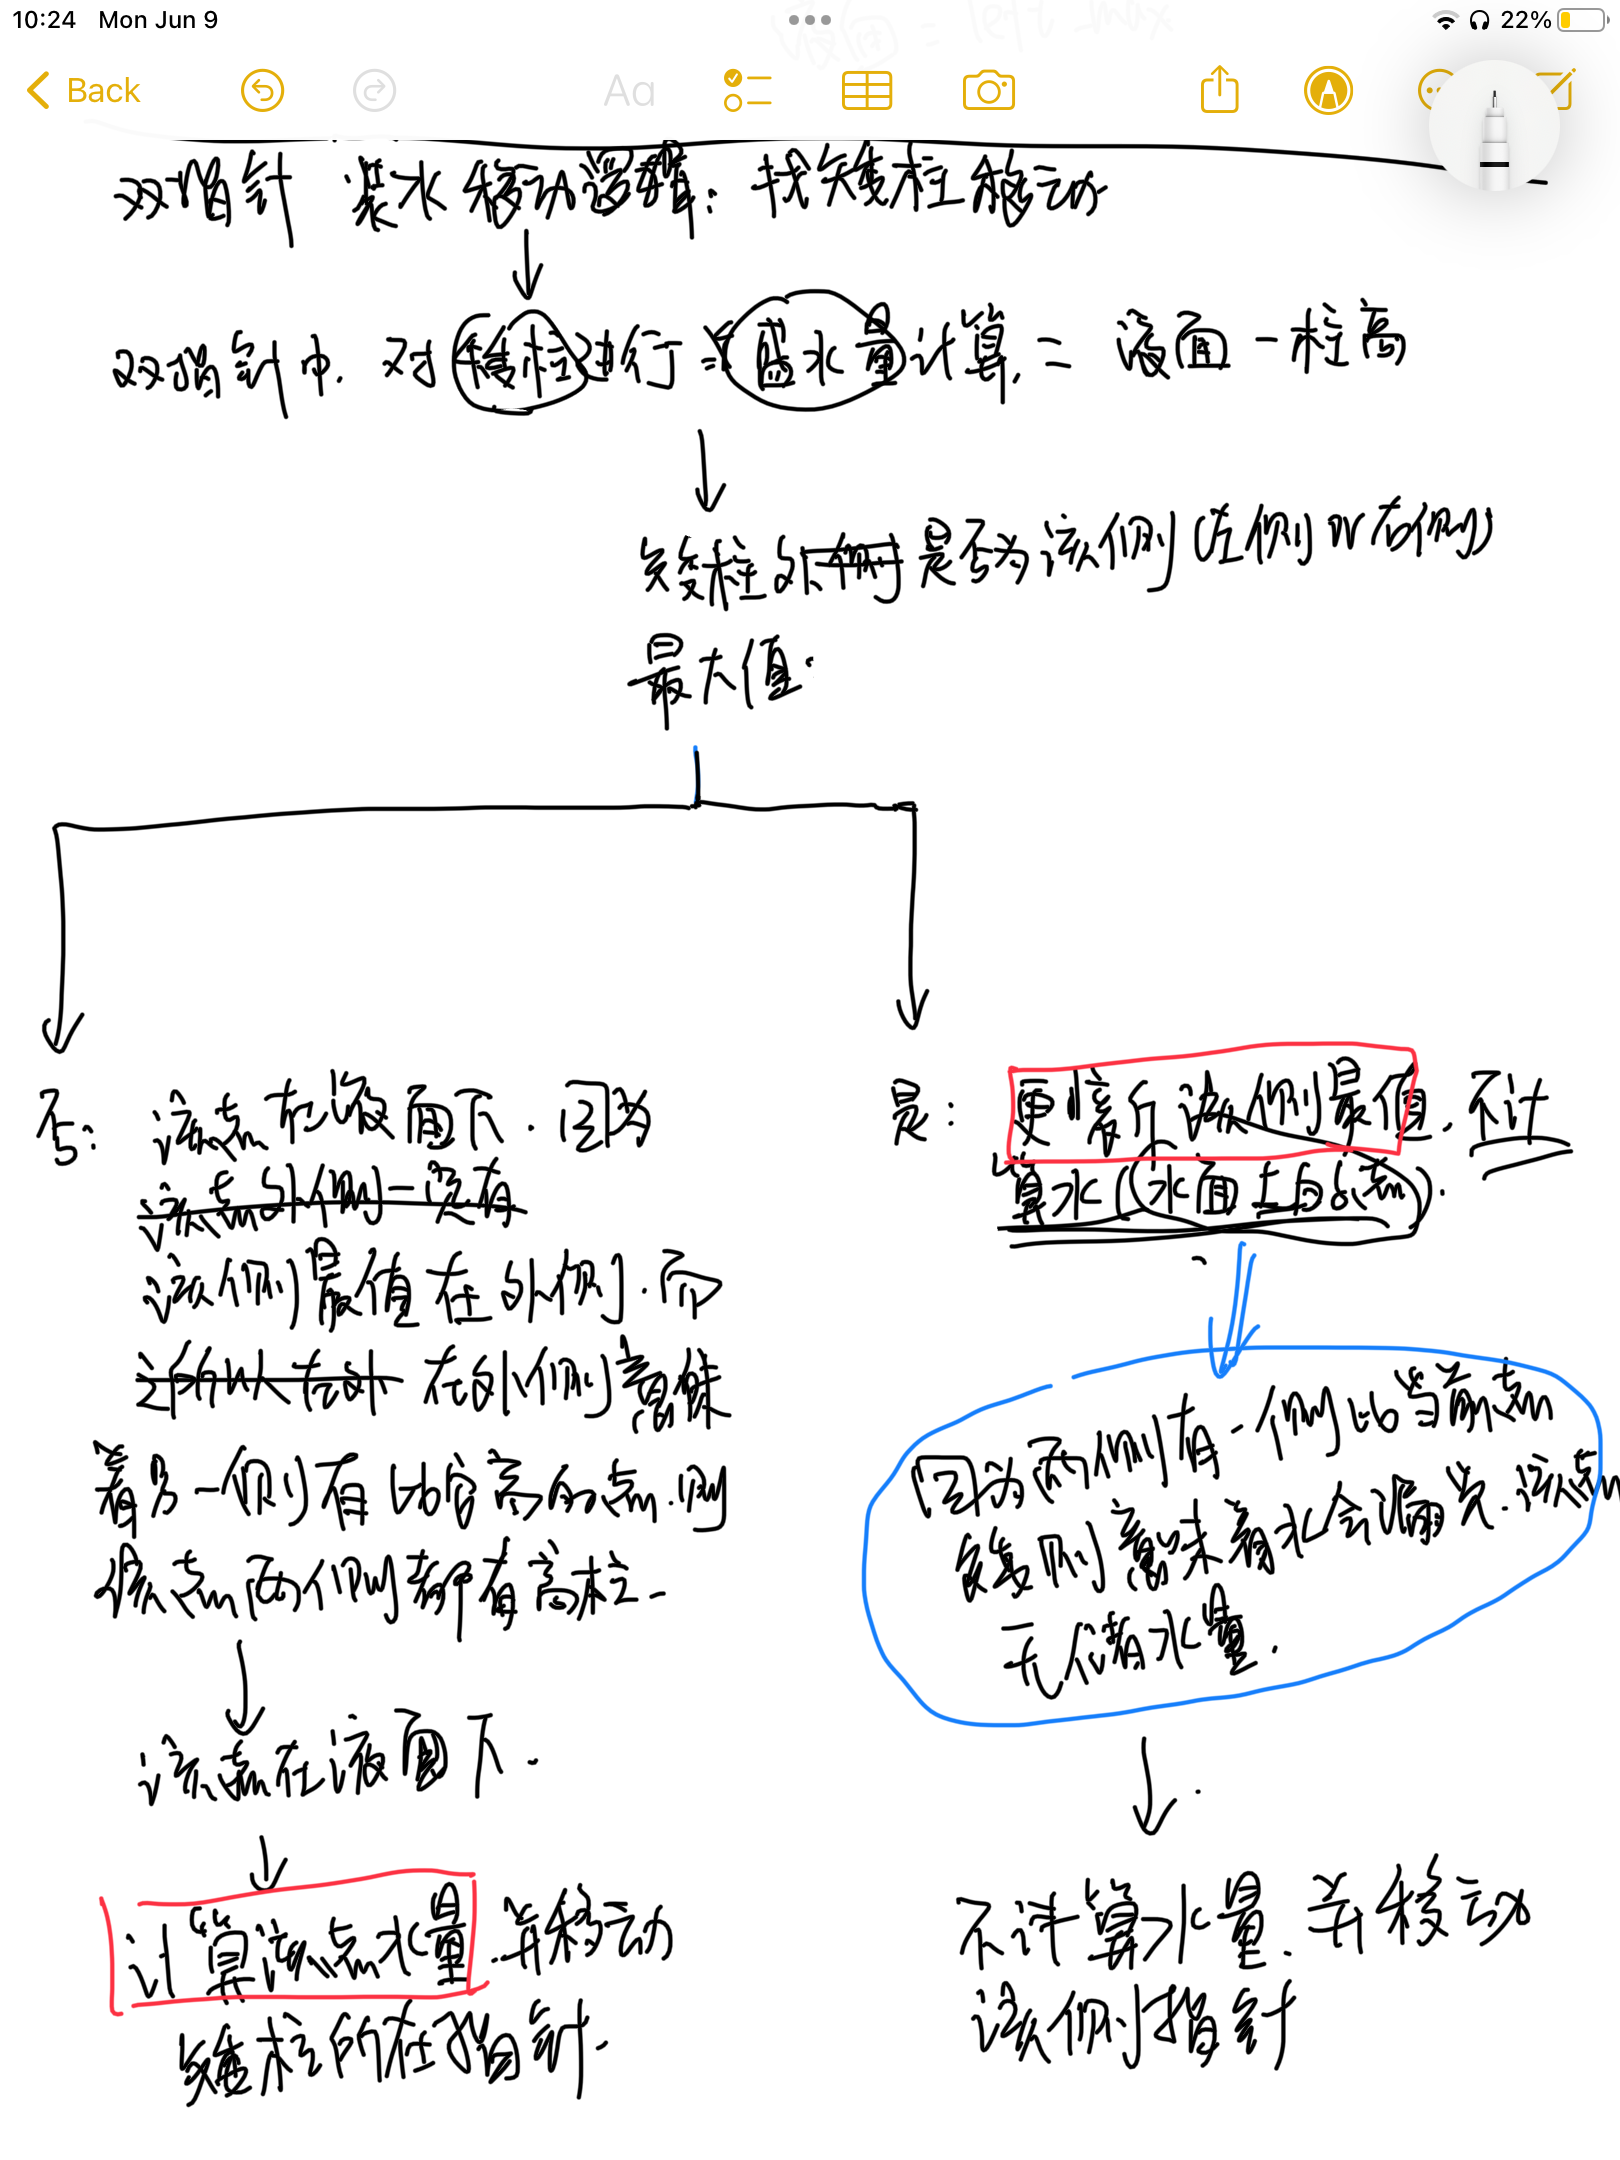 10:24 Mon Jun 9
22%
液面 = left_max
Back
Aa
双指针 装水移动逻辑: 找矮柱移动
双指针中. 对矮柱进行盛水量计算, = 液面 - 柱高
矮柱外侧是否为该侧 (左侧 or 右侧)
最大值.
否: 该点在液面下. 因为
该点外侧一定有
该侧最值在外侧. 而
在外侧意味
着另一侧有比它高的点. 则
该点两侧都有高柱.
该点在液面下.
计算该点水量. 并移动
矮柱所在指针.
是: 更新该侧最值. 不计
算水 (水面上的点).
因为两侧有一侧比当前点
矮则意味着水会漏光. 该点
无储水量.
不计算水量. 并移动
该侧指针